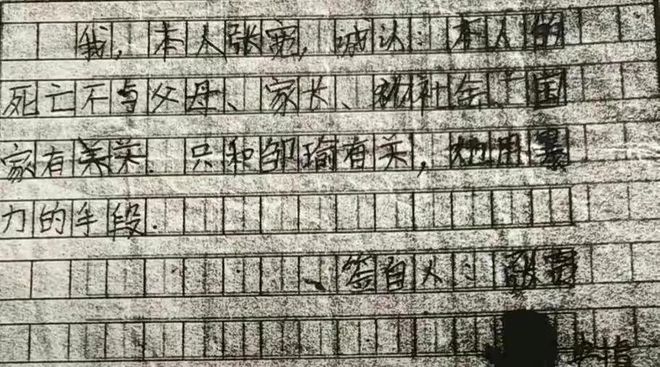 我,本人张宽,承认:本人的
死亡不与父母、家长、和社会、国
家有关系.只和邹瑜有关,她用暴
力的手段.
签自人:张宽